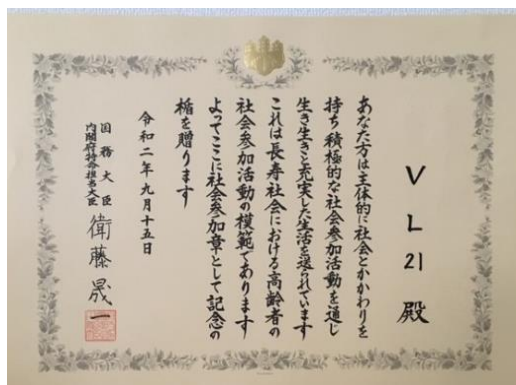 VL21殿
あなた方は主体的に社会とかかわりを
持ち積極的な社会参加活動を通じ
生き生きと充実した生活を送られています
これは長寿社会における高齢者の
社会参加活動の模範であります
よってここに社会参加章として記念の
楯を贈ります
令和二年九月十五日
国務大臣
内閣府特命担当大臣
衛藤晟一